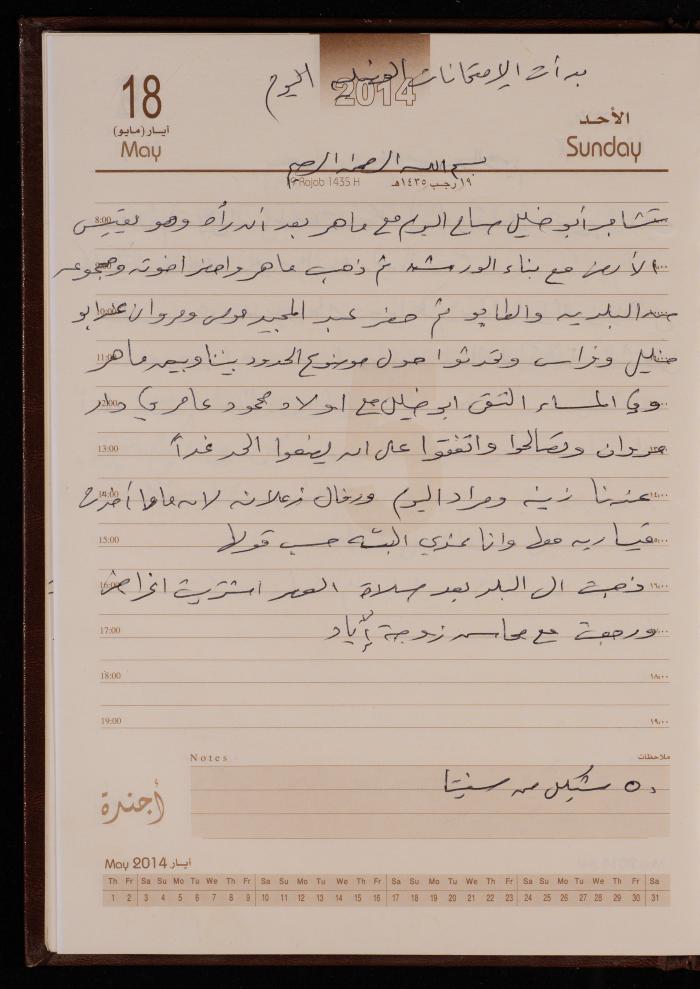 بدأت الإمتحانات الفصلية اليوم
2014
18
أيار (مايو)
May
الأحد
Sunday
بسم الله الرحمن الرحيم
19 Rajab 1435 H
١٩ رجب ١٤٣٥هـ
8:00 تشاجر أبو خليل صباح اليوم مع ماهر بعد أن رآه وهو يقيس
الأرض مع بناء الورشه ثم ذهب ماهر واحضر اخوته ومجموعه
10:00 من البلديه والطابو ثم حضر عبد المجيد موسى ومروان
11:00 خليل وفراس وتحدثوا حول موضوع الحدود بيننا وبين ماهر
12:00 وفي المساء التقى ابو خليل مع اولاد محمود عامر في دار
13:00 مروان وتصالحوا واتفقوا على ان يضعوا الحد غداً
14:00 عندنا زينه ومراد اليوم ورفال زعلانه لانه ماما
15:00 وانا عندي البشه حسب قولها
16:00 ذهبت الى البلد بعد صلاة العصر اشتريت اغراض ١٦،٠٠
17:00 ورجعت مع محاسن زوجة إياد
18:00 ١٨،٠٠
19:00 ١٩،٠٠
Notes ملاحظات
٥٠ شيكل من سنيتا
أجندة
May 2014 أيار
Th Fr Sa Su Mo Tu We Th Fr Sa Su Mo Tu We Th Fr Sa Su Mo Tu We Th Fr Sa Su Mo Tu We Th Fr Sa
1 2 3 4 5 6 7 8 9 10 11 12 13 14 15 16 17 18 19 20 21 22 23 24 25 26 27 28 29 30 31